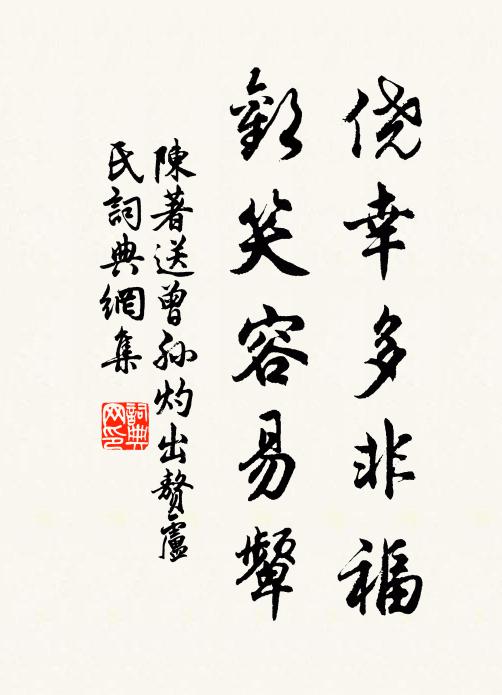 侥幸多非福
歡笑容易顰
陳著送曾孫灼出贅盧
氏詞典網集
詞典网印